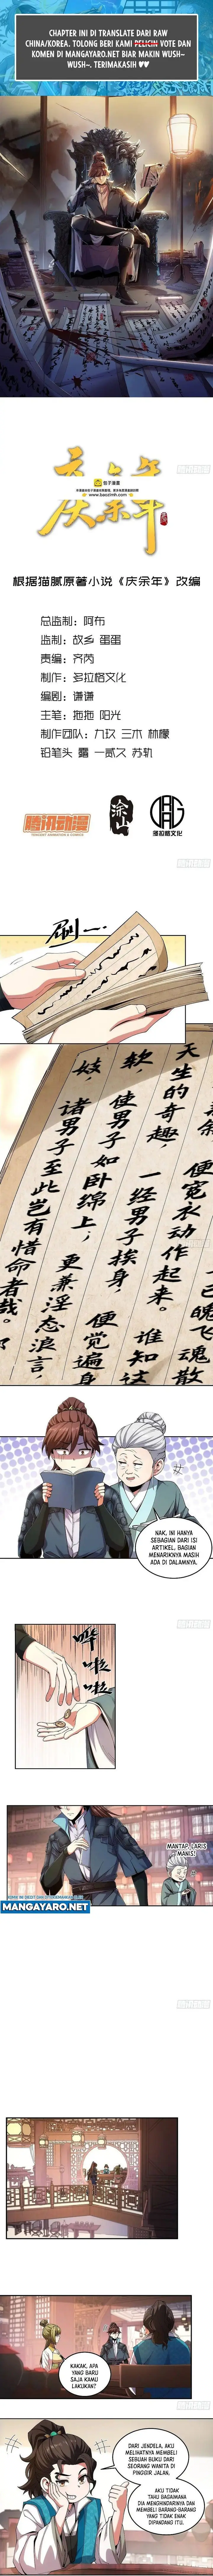 CHAPTER INI DI TRANSLATE DARI RAW
CHINA/KOREA. TOLONG BERI KAMI VOTE DAN
KOMEN DI MANGAYARO.NET BIAR MAKIN WUSH~
WUSH~. TERIMAKASIH ♥♥
庆余年
包子漫畫
www.baozimh.com
根据猫腻原著小说《庆余年》改编
总监制：阿布
监制：故乡 蛋蛋
责编：齐芮
制作：多拉格文化
编剧：谦谦
主笔：拖拖 阳光
制作团队：九玖 三木 林檬
铅笔头 露 一贰久 苏轨
腾讯动漫
TENCENT ANIMATION & COMICS
多拉格文化
刷一
天生的奇趣，
一经男子挨身，
便觉遍身
软
使男子如卧绵上，
更兼淫态浪言，
妓，
诸男子至此岂有惜命者哉。
便宽衣动作起来。
谁知这
已魄飞魂散
NAK, INI HANYA
SEBAGIAN DARI ISI
ARTIKEL, BAGIAN
MENARIKNYA MASIH
ADA DI DALAMNYA.
哗啦啦
MANTAP, LARIS
MANIS!
MANGAYARO.NET
KAKAK, APA
YANG BARU
SAJA KAMU
LAKUKAN?
DARI JENDELA, AKU
MELIHATNYA MEMBELI
SEBUAH BUKU DARI
SEORANG WANITA DI
PINGGIR JALAN.
AKU TIDAK
TAHU BAGAIMANA
DIA MENGHINDARINYA DAN
MEMBELI BARANG-BARANG
YANG TIDAK ENAK
DIPANDANG ITU.